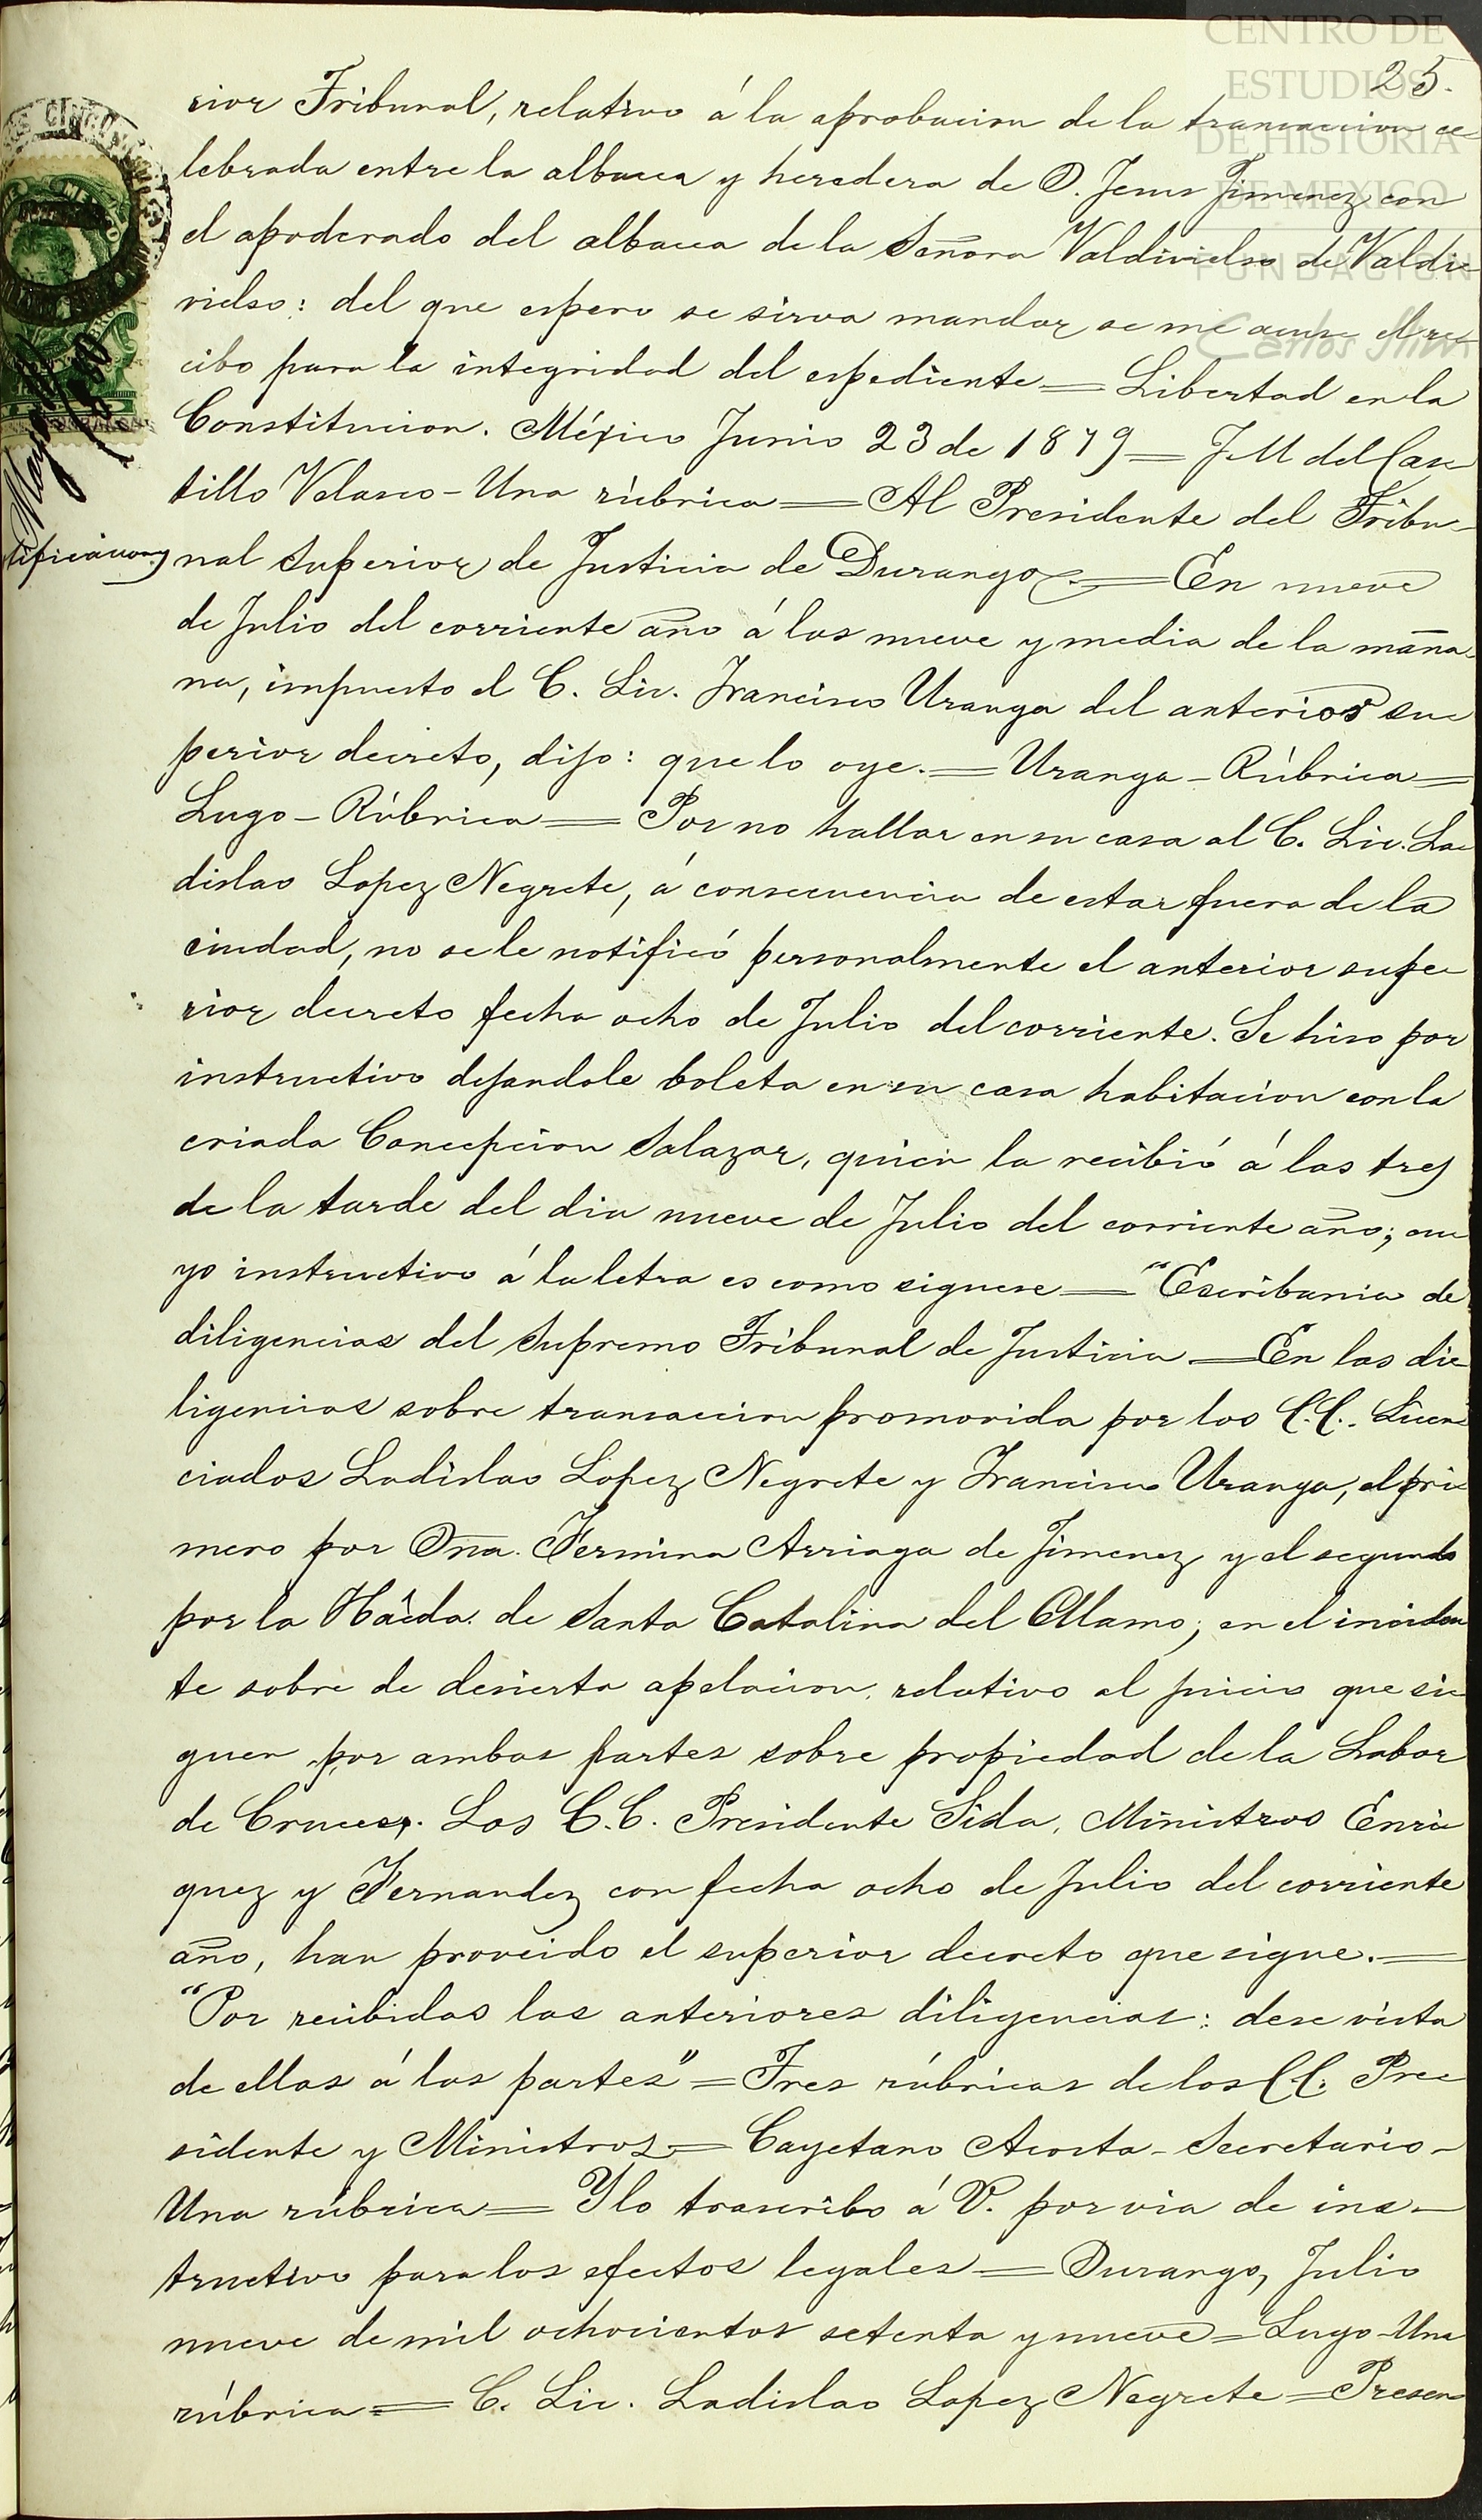 CENTRO DE
ESTUDIOS
DE HISTORIA
DE MEXICO
FUNDACIÓN
Carlos Slim
25.
rior Tribunal, relativo á la aprobacion de la transaccion ce
lebrada entre la albacea y heredera de D. Jesus Jimenez con
el apoderado del albacea de la Señora Valdivielso de Valdi
vielso: del que espero se sirva mandar se me acuse el re
cibo para la integridad del espediente = Libertad en la
Constitucion. México Junio 23 de 1879 = J. M del Cas
tillo Velasco - Una rúbrica = Al Presidente del Tribu-
tificacions
nal Superior de Justicia de Durango = En nueve
de Julio del corriente año á las nueve y media de la maña
na, impuesto el C. Lic. Francisco Uranga del anterior su
perior decreto, dijo: que lo oye. = Uranga - Rúbrica =
Lugo - Rúbrica = Por no hallar en su casa al C. Lic. La
dislao Lopez Negrete, á consecuencia de estar fuera de la
ciudad, no se le notificó personalmente el anterior supe
rior decreto fecha ocho de Julio del corriente. Se hiso por
instructivo dejandole boleta en su casa habitacion con la
criada Concepcion Salazar, quien la recibió á las tres
de la tarde del dia nueve de Julio del corriente año; cu
yo instructivo á la letra es como siguese = "Escribania de
diligencias del Supremo Tribunal de Justicia = En las di
ligencias sobre transaccion promovida por los C.C. Licen
ciados Ladislao Lopez Negrete y Francisco Uranga, el pri
mero por Dna. Fermina Arriaga de Jimenez y el segundo
por la Hacda. de Santa Catalina del Alamo; en el inciden
te sobre de desierta apelacion, relativo al juicio que si
guen por ambas partes sobre propiedad de la Labor
de Cruces. Los C.C. Presidente Sida, Ministros Enri
quez y Fernandez con fecha ocho de Julio del corriente
año, han proveido el superior decreto que sigue. =
"Por recibidas las anteriores diligencias: dese vista
de ellas á las partes" = Tres rúbricas de los C.C. Pre
sidente y Ministros = Cayetano Acosta - Secretario -
Una rúbrica = Y lo trascribo á V. por via de ins-
tructivo para los efectos legales = Durango, Julio
nueve de mil ochocientos setenta y nueve = Lugo - Una
rúbrica = C. Lic. Ladislao Lopez Negrete = Presen